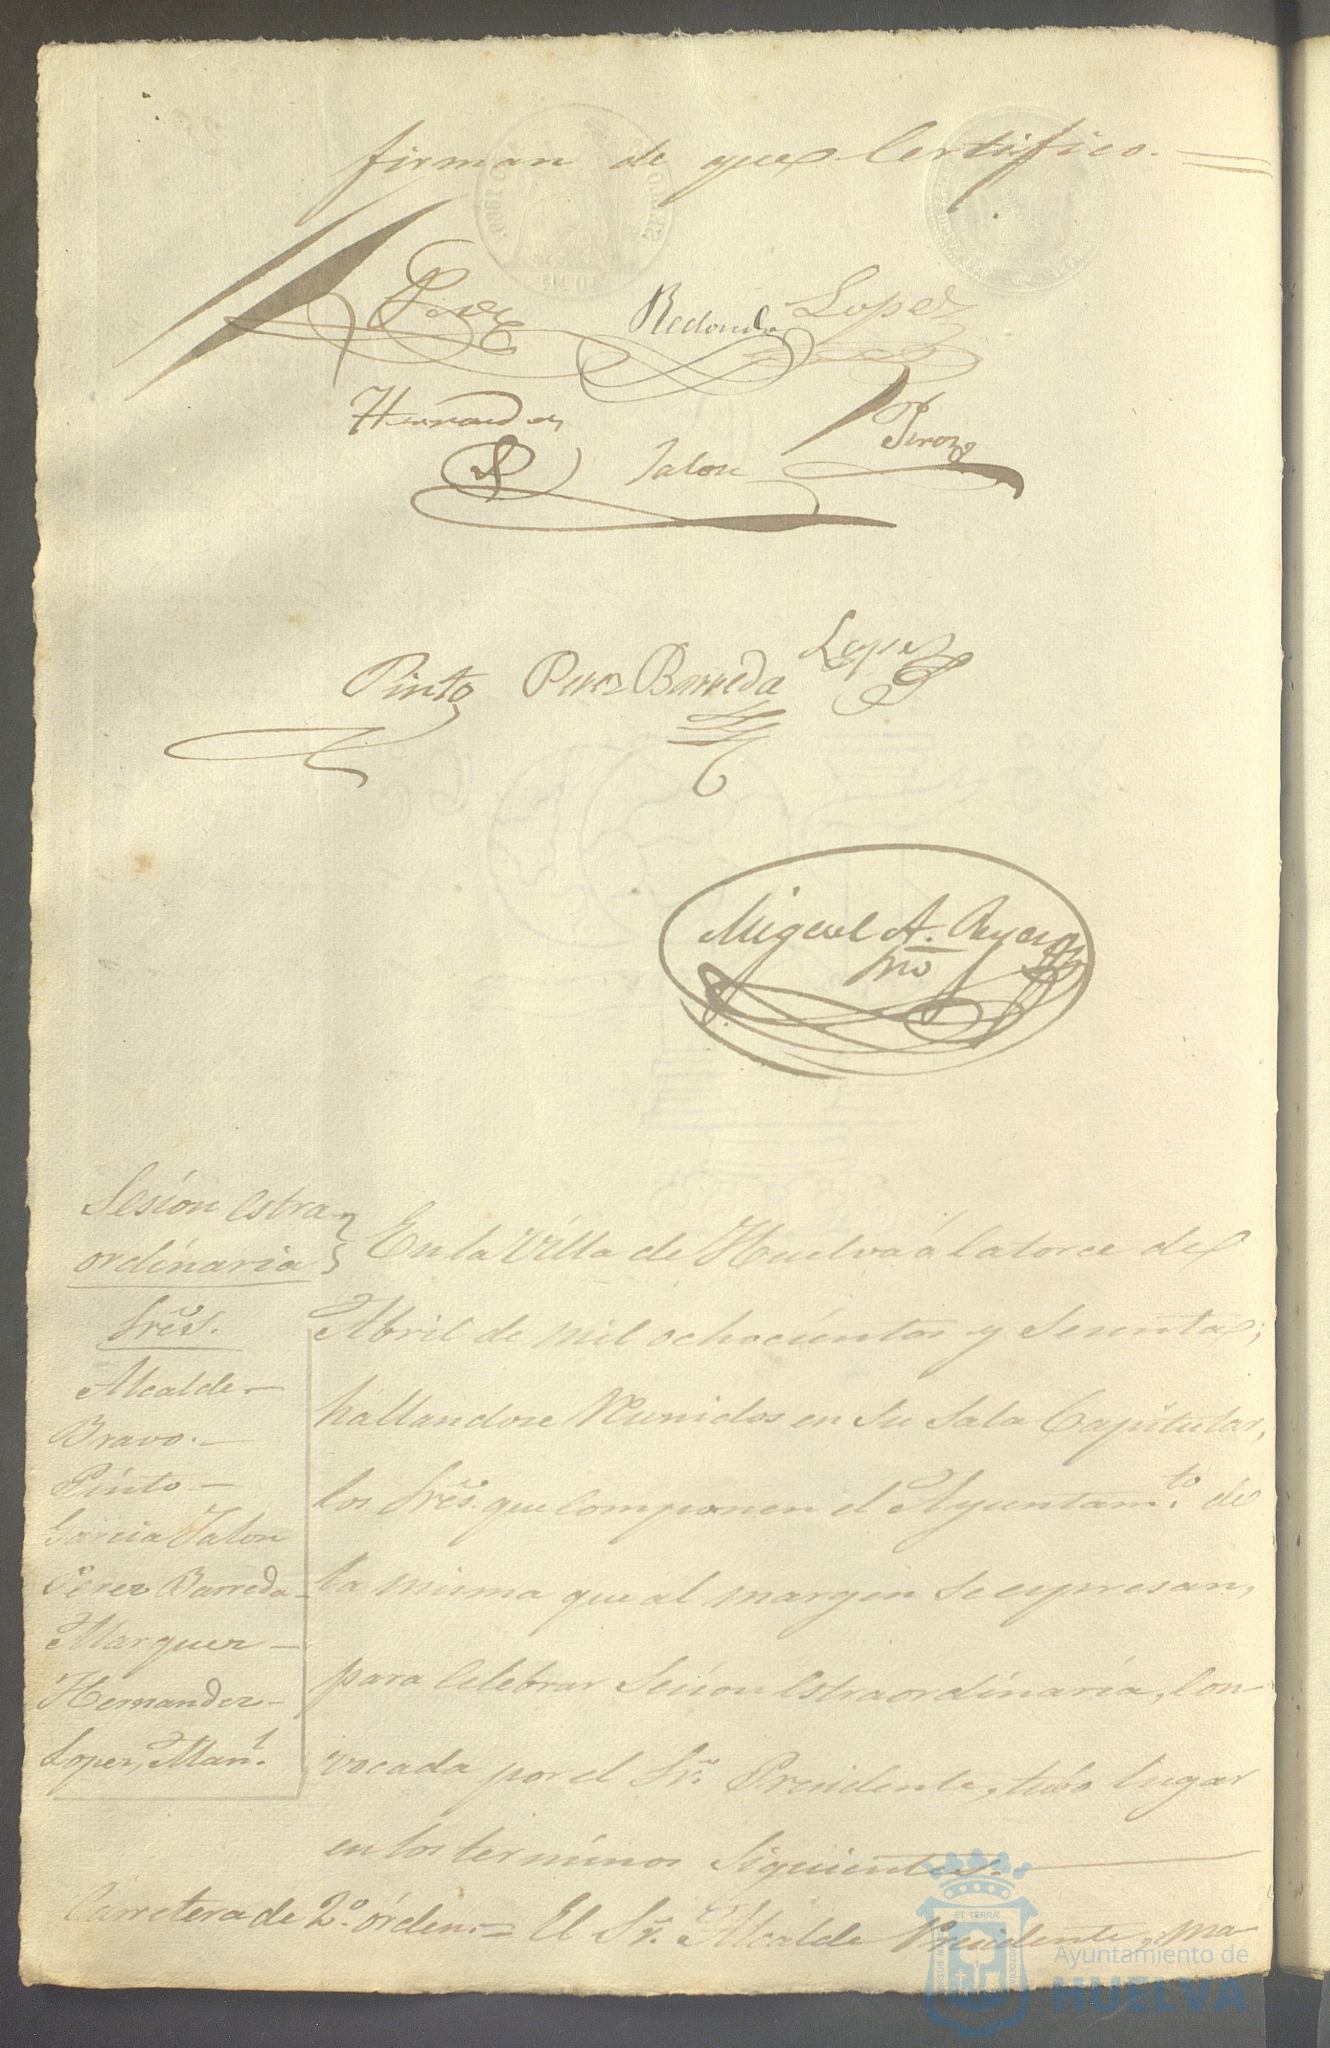 firman de que Certifico.
Redondo Lopez
Hernandez
Talon
Pinto Perez Barreda Lopez
Miguel A.
Srio
Sesion estra-
ordinaria
Sres.
Alcalde-
Bravo.-
Pinto-
Garcia Talon
Perez Barreda-
Marquez-
Hernandez-
Lopez, Manl.
En la Villa de Huelva á Catorce de
Abril de mil ochocientos y sesenta;
hallandose Reunidos en su Sala Capitular,
los Sres. que Componen el Ayuntamto. de
la misma que al margen se espresan,
para Celebrar Sesion estraordinaria, Con-
vocada por el Sr. Presidente, tubo lugar
en los terminos Siguientes.
Carretera de 2º órden.= El Sr. Alcalde Presidente, ma-
Ayuntamiento de
HUELVA